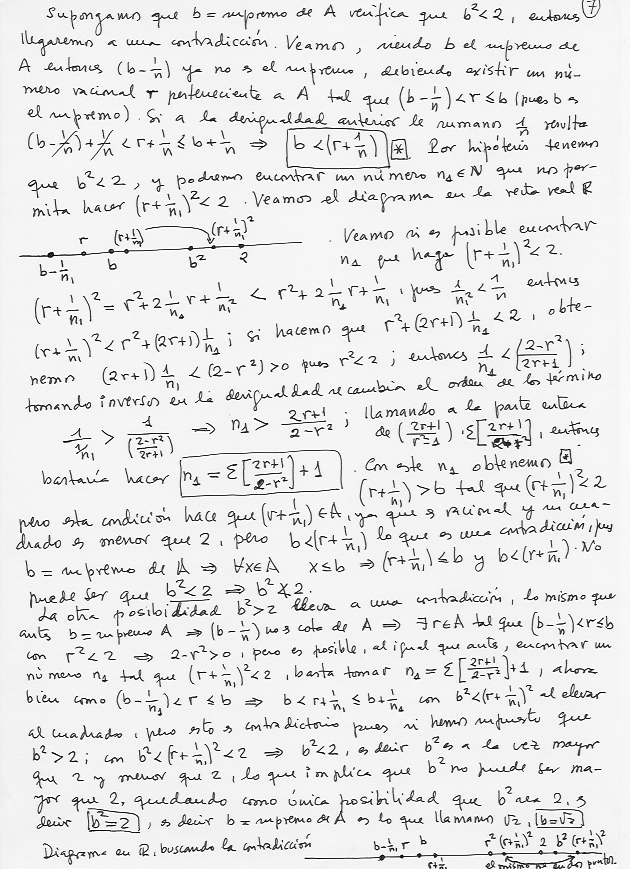 Supongamos que b = supremo de A verifica que b² < 2, entonces (7)
llegaremos a una contradicción. Veamos, siendo b el supremo de
A entonces (b-1/n) ya no es el supremo, debiendo existir un nú-
mero racional r perteneciente a A tal que (b-1/n) < r ≤ b (pues b es
el supremo). Si a la desigualdad anterior le sumamos 1/n resulta
(b-1/n)+1/n < r+1/n ≤ b+1/n ⇒ b < (r+1/n) * . Por hipótesis tenemos
que b² < 2, y podremos encontrar un número n₁ ∈ N que nos per-
mita hacer (r+1/n₁)² < 2. Veamos el diagrama en la recta real R
b-1/n₁ r b (r+1/n₁) b² (r+1/n₁)² 2
. Veamos si es posible encontrar
n₁ que haga (r+1/n₁)² < 2.
(r+1/n₁)² = r²+2 1/n₁ r+1/n₁² < r²+2 1/n₁ r+1/n₁, pues 1/n₁² < 1/n entonces
(r+1/n₁)² < r²+(2r+1) 1/n₁; si hacemos que r²+(2r+1) 1/n₁ < 2, obte-
nemos (2r+1) 1/n₁ < (2-r²) > 0 pues r² < 2; entonces 1/n₁ < (2-r²/2r+1);
tomando inversos en la desigualdad se cambia el orden de los términos
1/(1/n₁) > 1/((2-r²)/(2r+1)) ⇒ n₁ > (2r+1)/(2-r²); llamando a la parte entera
de ((2r+1)/(r²-1)), E[(2r+1)/(2-r²)], entonces
bastaría hacer n₁ = E[(2r+1)/(2-r²)]+1 . Con este n₁ obtenemos *
(r+1/n₁) > b tal que (r+1/n₁)² < 2
pero esta condición hace que (r+1/n₁) ∈ A, ya que es racional y su cua-
drado es menor que 2, pero b < (r+1/n₁) lo que es una contradicción, pues
b = supremo de A ⇒ ∀x∈A x ≤ b ⇒ (r+1/n₁) ≤ b y b < (r+1/n₁). No
puede ser que b² < 2 ⇒ b² ≮ 2.
La otra posibilidad b² > 2 lleva a una contradicción, lo mismo que
antes b = supremo A ⇒ (b-1/n) no es cota de A ⇒ ∃ r∈A tal que (b-1/n) < r ≤ b
con r² < 2 ⇒ 2-r² > 0, pero es posible, al igual que antes, encontrar un
número n₁ tal que (r+1/n₁)² < 2, basta tomar n₁ = E[(2r+1)/(2-r²)]+1, ahora
bien como (b-1/n₁) < r ≤ b ⇒ b < r+1/n₁ ≤ b+1/n₁ con b² < (r+1/n₁)² al elevar
al cuadrado, pero esto es contradictorio pues si hemos supuesto que
b² > 2; con b² < (r+1/n₁)² < 2 ⇒ b² < 2, es decir b² es a la vez mayor
que 2 y menor que 2, lo que implica que b² no puede ser ma-
yor que 2, quedando como única posibilidad que b² sea 2, es
decir b² = 2, es decir b = supremo de A es lo que llamamos √2, b = √2
Diagrama en R, buscando la contradicción
b-1/n₁ r b r+1/n₁ r² (r+1/n₁)² 2 b² (r+1/n₁)²
el mismo no en dos puntos.